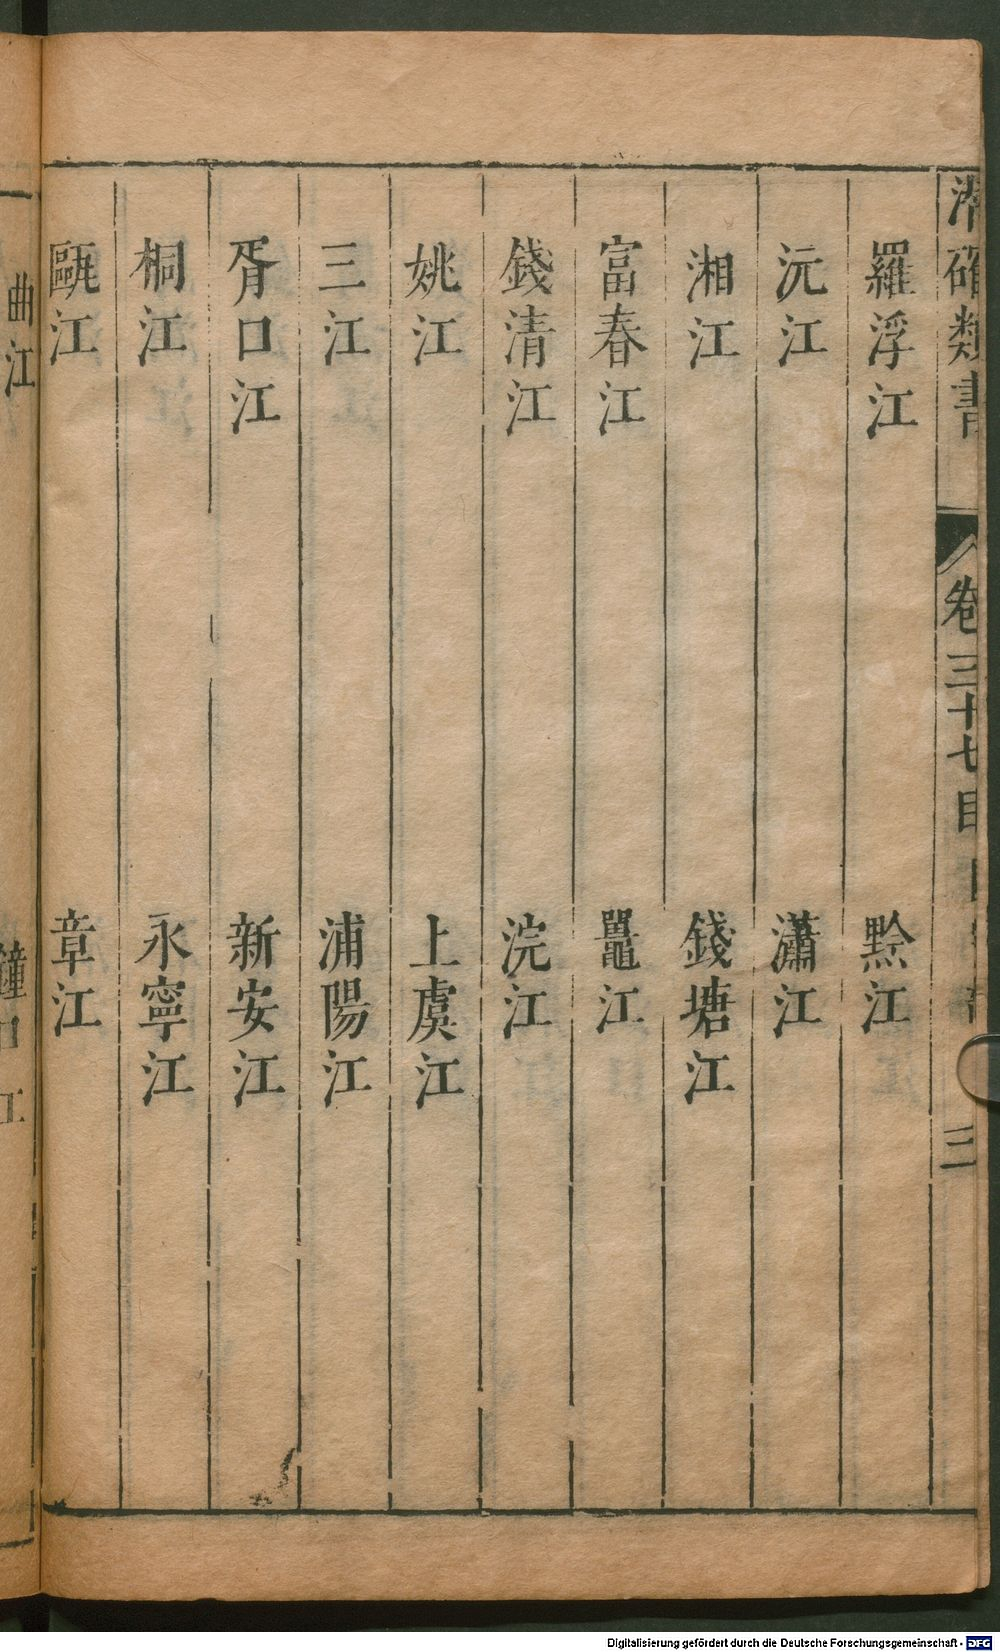 潛確類書
卷三十七目
三
羅浮江 黔江
沅江 瀟江
湘江 錢塘江
富春江 鼍江
錢清江 浣江
姚江 上虞江
三江 浦陽江
胥口江 新安江
桐江 永寧江
甌江 章江
曲江
Digitalisierung gefördert durch die Deutsche Forschungsgemeinschaft - DFG